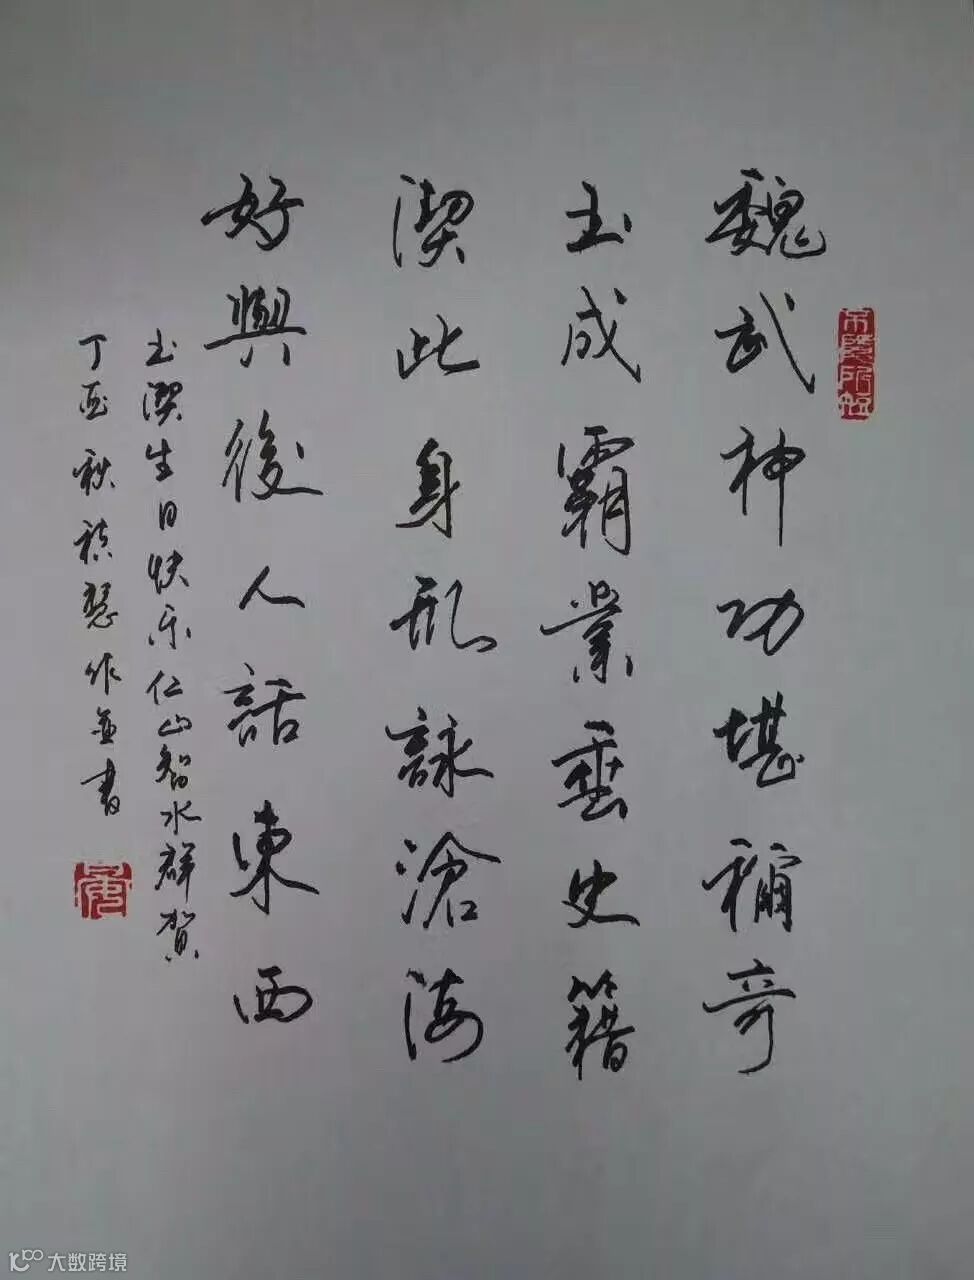 魏武神功堪稱奇
玉成霸業垂史籍
澩此身形詠滄海
好與後人話東西
玉澩生日快乐仁山智水群贺
丁酉秋 作並書
大数跨境